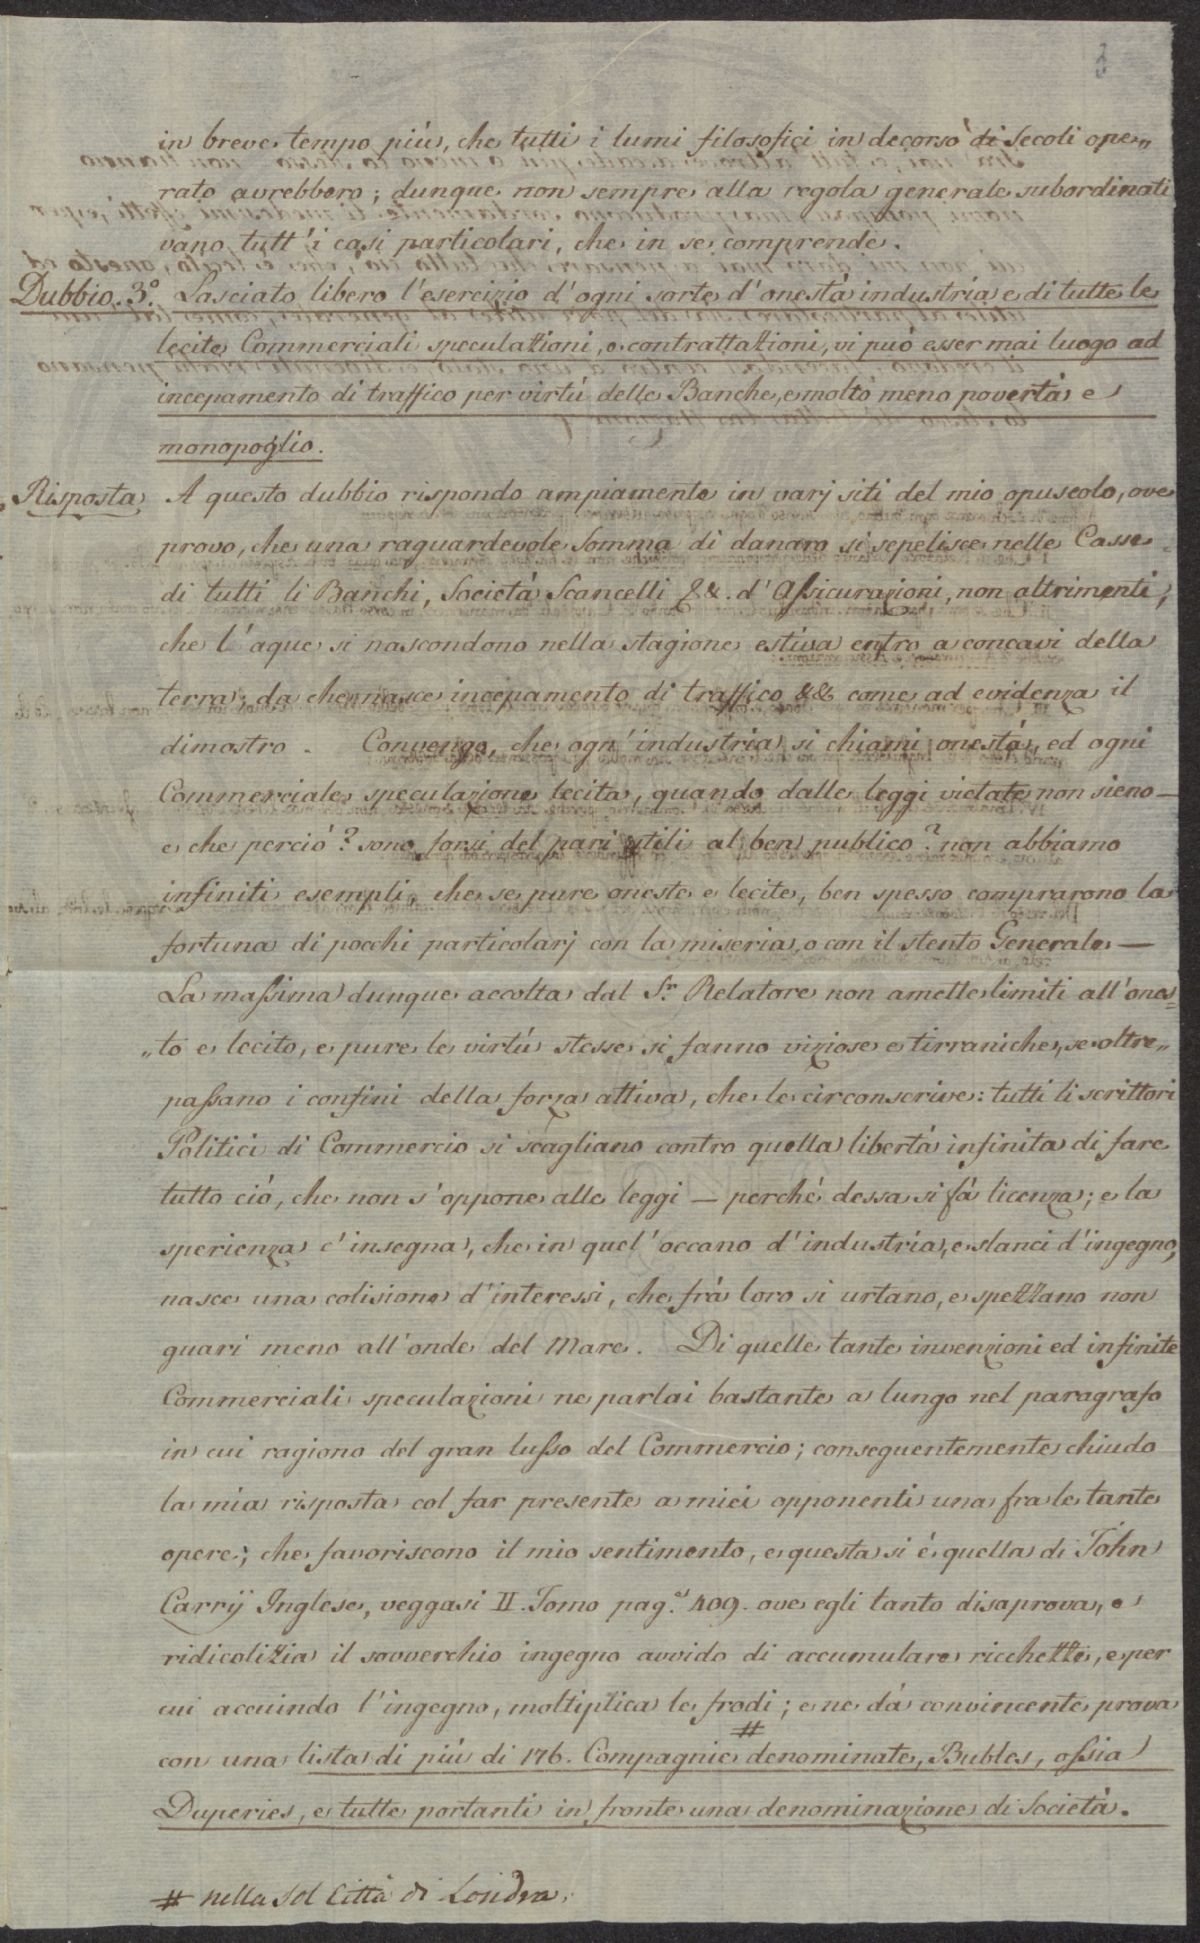 in breve tempo più, che tutti i lumi filosofici in decorso di secoli ope„
rato avrebbero; dunque non sempre alla regola generale subordinati
vano tutt'i casi particolari, che in se comprende.
Dubbio 3.º Lasciato libero l'esercizio d'ogni sorte d'onestà industria e di tutte le
lecite Commerciali speculazioni, o contrattazioni, vi può esser mai luogo ad
incepamento di traffico per virtù delle Banche, e molto meno povertà e
monopoglio.
Risposta A questo dubbio rispondo ampiamente in varj siti del mio opuscolo, ove
provo, che una raguardevole Somma di danaro si sepelisce nelle Casse
di tutti li Banchi, Società Scancelli &&. d'Assicurazioni, non altrimenti,
che l'aque si nascondono nella stagione estiva entro a concavi della
terra; da che nasce incepamento di traffico && come ad evidenza il
dimostro. Convengo, che ogn'industria si chiami onestà, ed ogni
Commerciale speculazione lecita, quando dalle leggi vietate non sieno —
e che perciò? sono forsi del pari utili al ben publico? non abbiamo
infiniti esempli, che se pure oneste e lecite, ben spesso comprarono la
fortuna di pocchi particolarj con la miseria, o con il stento Generale —
La massima dunque accolta dal S.r Relatore non amette limiti all'ones=
„to e lecito, e pure le virtù stesse si fanno viziose e tirraniche, se oltre„
passano i confini della forza attiva, che le circonscrive: tutti li scrittori
Politici di Commercio si scagliano contro quella libertà infinita di fare
tutto ciò, che non s'oppone alle leggi — perchè dessa si fà licenza; e la
sperienza c'insegna, che in quel'occano d'industria, e slanci d'ingegno,
nasce una colisione d'interessi, che frà loro si urtano, e spezzano non
guari meno all'onde del Mare. Di quelle tante invenzioni ed infinite
Commerciali speculazioni ne parlai bastante a lungo nel paragrafo
in cui ragiono del gran lusso del Commercio; conseguentemente chiudo
la mia risposta col far presente a miei opponenti una fra le tante
opere; che favoriscono il mio sentimento, e questa si è quella di Tohn
Carrÿ Inglese, veggasi II. Tomo pag.ª 409. ove egli tanto disaprova, e
ridicolizia il sovverchio ingegno avvido di accumulare ricchezze, e per
cui accuindo l'ingegno, moltiplica le frodi; e ne dà convincente prova
con una lista di più di 176. Compagnie # denominate, Bubles, ossia
Duperies, e tutte portanti in fronte una denominazione di Società.
# nella Sol Città di Londra.